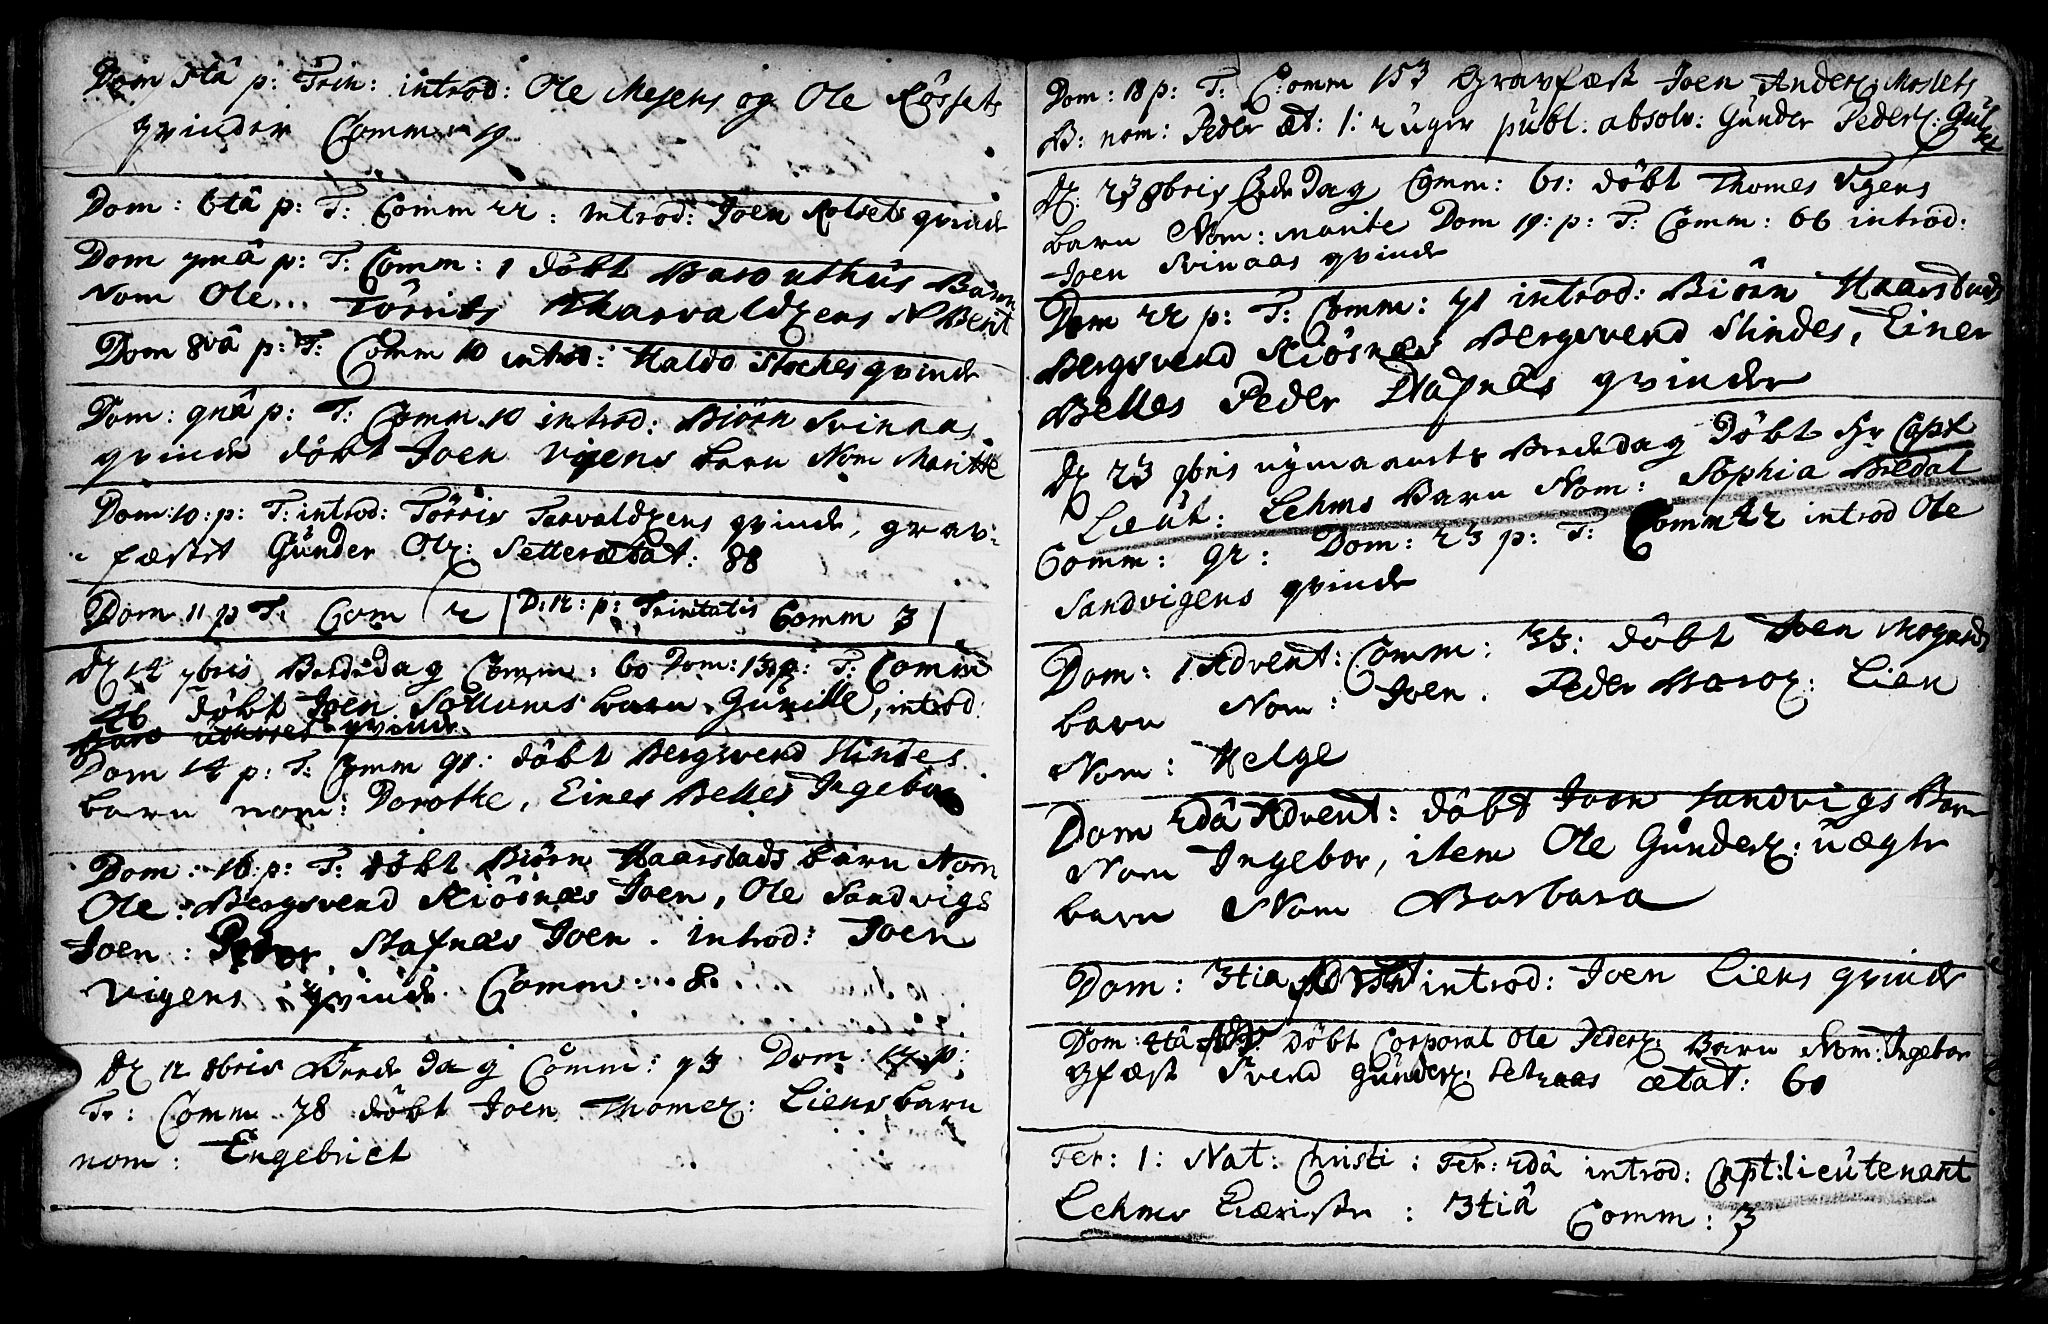 Dom 5tâ p: Trin: introd: Ole Mesens og Ole Rössets
qvinder Comm 19
Dom: 6tâ p: T: Comm 22: introd: Joen Rolsets qvinde
Dom 7mâ p: T: Comm: 1 döbt Baro uthûs Barn
Nom Ole... Törris Tharvaldzens N Berit
Dom 8vâ p: T: Comm 10 introd: Haldo Stockes qvinde
Dom: 9nâ p: T: Comm 10 introd: Biörn Svinaas
qvinde döbt Joen Vigens barn Nom Maritte
Dom: 10: p: T: introd: Törris Tarvaldzens qvinde, grav-
fæstet Gûnder Olz: Setter ætat: 88
Dom 11 p T: Com 2 | D: 12: p: Trinitatis Comm 3 |
Dz 14 7bris Bededag Comm: 60 Dom: 13 p: T: Comm
46 döbt Joen barn Gûnille, introd:
Baro qvinde
Dom 14 p: T: Comm 91: döbt Bergsvend Slindes
barn nom: Dorothe, Einer Belles Ingebor
Dom: 16: p: T: döbt Biörn Haarstads barn Nom
Ole: Bergsvend Kiösnæs Joen, Ole Sandvigs
Joen: Peder Stafnæs Joen. introd: Joen
Vigens qvinde Comm: 8
Dz 12 8bris Beede dag Comm: 93 Dom: 17 p:
Tr: Comm 78 döbt Joen Thomez: Liens barn
nom: Engebrict
Dom: 18 p: T: Comm 153 Gravfæst Joen Anderz: Moslets
B: nom: Peder æt: 1: 2 ûger pûbl: absolv: Gûnder Pederz:
Dz: 23 8bris Bededag Comm: 61: döbt Thomes Vigens
barn Nom: Marite Dom 19: p: T: Comm: 66 introd:
Joen Svinaas qvinde
Dom 22 p: T: Comm: 71 introd: Biörn Haarstads
Bergsvend Kiösnæs Bergsvend Slindes, Einer
Belles Peder Stafnæs qvinder
Dz 23 9bris nymaanets Beededag döbt Hr Capt
Lieut: Lehms Barn Nom: Sophia Bildal
Comm: 92: Dom: 23 p: T: Comm 42 introd Ole
Sandvigens qvinde
Dom: 1 Advent: Comm: 33: döbt Joen Mogards
barn Nom: Joen. Peder Baroz: Lien
Nom: Helge
Dom 2dâ Advent: döbt Joen Sandvigs Barn
Nom Ingebor, item Ole Gûnderz: uægte
barn Nom Barbara
Dom: 3tia Advent introd: Joen Liens qvinde
Dom: 4tâ Adv: döbt Corporal Ole Pederz: Barn Nom: Ingebor
Gfæst Svend Gûnderz: Setsaas ætat: 60
Fer: 1: Nat: Christi: Fer: 2dâ introd: Capt: lieutenant
Lehms Kiæriste: 3tiâ Comm: 3